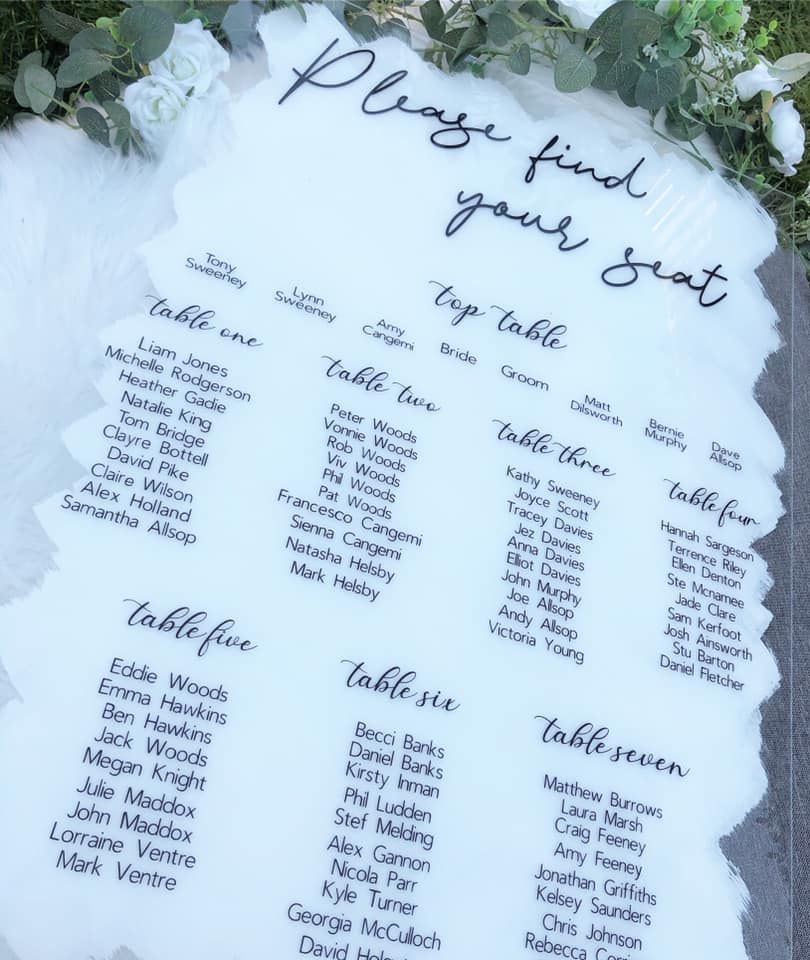 Please find
your seat
top table
Tony
Sweeney
Lynn
Sweeney
Amy
Cangemi
Bride
Groom
Matt
Dilsworth
Bernie
Murphy
Dave
Allsop
table one
Liam Jones
Michelle Rodgerson
Heather Gadie
Natalie King
Tom Bridge
Clayre Bottell
David Pike
Claire Wilson
Alex Holland
Samantha Allsop
table two
Peter Woods
Vonnie Woods
Rob Woods
Viv Woods
Phil Woods
Pat Woods
Francesco Cangemi
Sienna Cangemi
Natasha Helsby
Mark Helsby
table three
Kathy Sweeney
Joyce Scott
Tracey Davies
Jez Davies
Anna Davies
Elliot Davies
John Murphy
Joe Allsop
Andy Allsop
Victoria Young
table four
Hannah Sargeson
Terrence Riley
Ellen Denton
Ste Mcnamee
Jade Clare
Sam Kerfoot
Josh Ainsworth
Stu Barton
Daniel Fletcher
table five
Eddie Woods
Emma Hawkins
Ben Hawkins
Jack Woods
Megan Knight
Julie Maddox
John Maddox
Lorraine Ventre
Mark Ventre
table six
Becci Banks
Daniel Banks
Kirsty Inman
Phil Ludden
Stef Melding
Alex Gannon
Nicola Parr
Kyle Turner
Georgia McCulloch
David
table seven
Matthew Burrows
Laura Marsh
Craig Feeney
Amy Feeney
Jonathan Griffiths
Kelsey Saunders
Chris Johnson
Rebecca